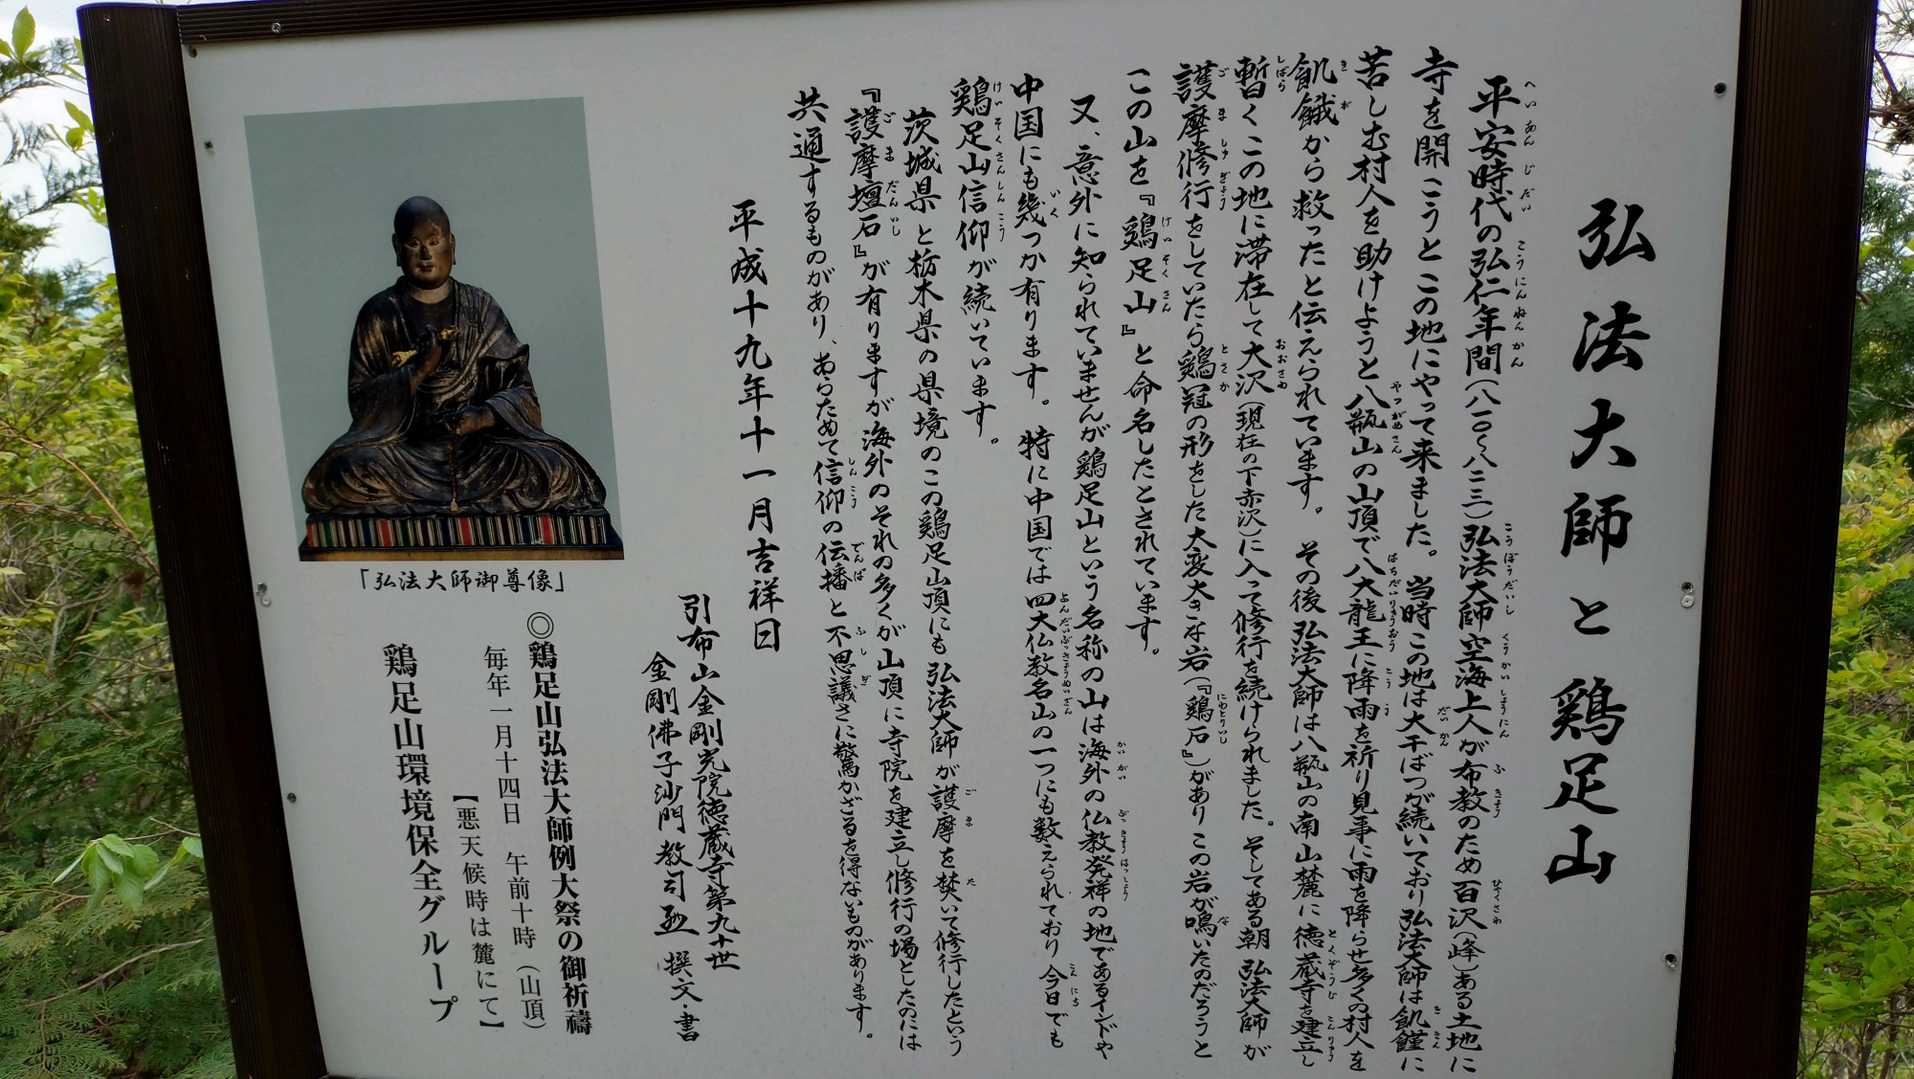 弘法大師と鶏足山
平安時代の弘仁年間(八一〇〜八二三)弘法大師空海上人が布教のため百沢(峰)ある土地に
寺を開こうとこの地にやって来ました。当時この地は大干ばつが続いており弘法大師は飢饉に
苦しむ村人を助けようと八瓶山の山頂で八大龍王に降雨を祈り見事に雨を降らせ多くの村人を
飢餓から救ったと伝えられています。その後弘法大師は八瓶山の南山麓に徳蔵寺を建立し
暫くこの地に滞在して大沢(現在の下赤沢)に入って修行を続けられました。そしてある朝弘法大師が
護摩修行をしていたら鶏冠の形をした大変大きな岩(『鶏石』)がありこの岩が鳴いたのだろうと
この山を『鶏足山』と命名したとされています。
又、意外に知られていませんが鶏足山という名称の山は海外の仏教発祥の地であるインドや
中国にも幾つか有ります。特に中国では四大仏教名山の一つにも数えられており今日でも
鶏足山信仰が続いています。
茨城県と栃木県の県境のこの鶏足山頂にも弘法大師が護摩を焚いて修行したという
『護摩壇石』が有りますが海外のそれの多くが山頂に寺院を建立し修行の場としたのには
共通するものがあり、あらためて信仰の伝播と不思議さに驚かざるを得ないものがあります。
平成十九年十一月吉祥日
引布山金剛光院徳蔵寺第九十世
金剛佛子沙門教司 撰文・書
「弘法大師御尊像」
◎鶏足山弘法大師例大祭の御祈禱
毎年一月十四日 午前十時(山頂)
【悪天候時は麓にて】
鶏足山環境保全グループ